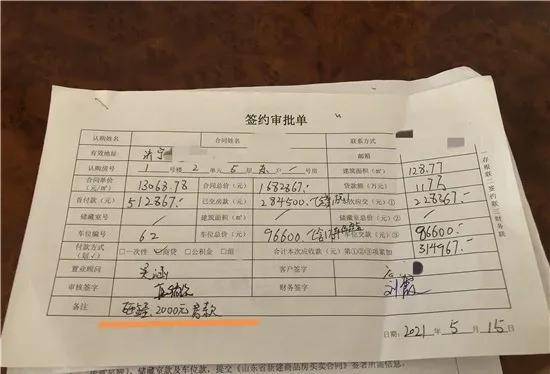 签约审批单
认购姓名 合同姓名 联系方式
有效地址 济宁 邮箱
认购房号 1 号楼 2 单元 5 层 东 户 号房 建筑面积(㎡) 128.77
合同单价(元/㎡) 13068.78 合同总价(元) 1682867.- 贷款额(万元) 117万
首付款(元) 512867.- 已交房款(元) 284500.- 次应交(元)① 228367.-
储藏室号 / 建筑面积(㎡) / 储藏室总价(元)② /
车位编号 62 车位总价(元) 96600.- 车位交款(元)③ 96600.-
付款方式(划√) □一次性 ☑商贷 □公积金 □组 合计本次应收款(元)第①②③项累加 314967.-
置业顾问 客户签字
审核签字 财务签字
备注 2000元房款
日期: 2021 年 5 月 15 日
储藏室款及车位款,提交《山东省新建商品房买卖合同》签署页面信息